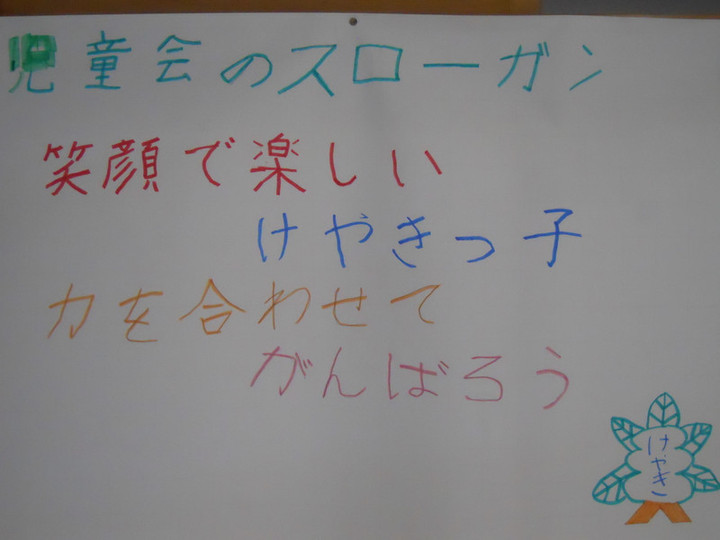 児童会のスローガン
笑顔で楽しい
けやきっ子
力を合わせて
がんばろう
けやき